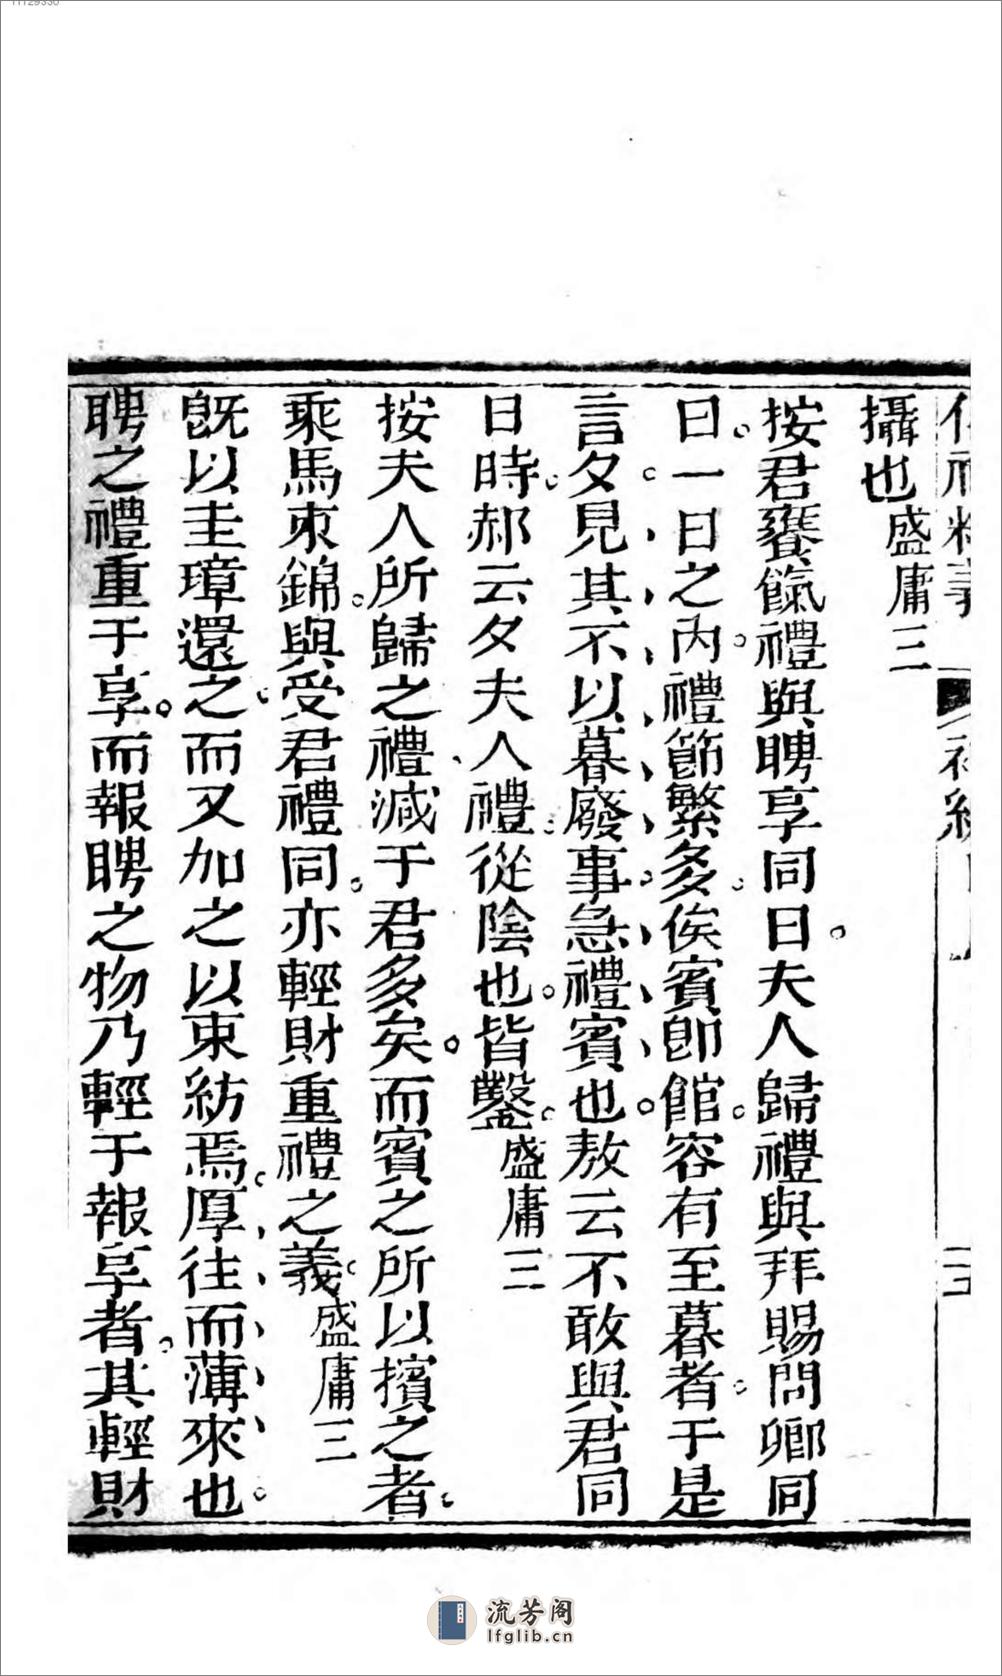 攝也盛庸三
按君饔餼禮與聘享同日夫人歸禮與拜賜問卿同
日一日之內禮節繁多俟賓卽館容有至暮者于是
言夕見其不以暮廢事急禮賓也敖云不敢與君同
日時郝云夕夫人禮從陰也皆鑿盛庸三
按夫人所歸之禮減于君多矣而賓之所以擯之者
乘馬束錦與受君禮同亦輕財重禮之義盛庸三
旣以圭璋還之而又加之以束紡焉厚往而薄來也
聘之禮重于享而報聘之物乃輕于報享者其輕財
流芳阁
lfglib.cn